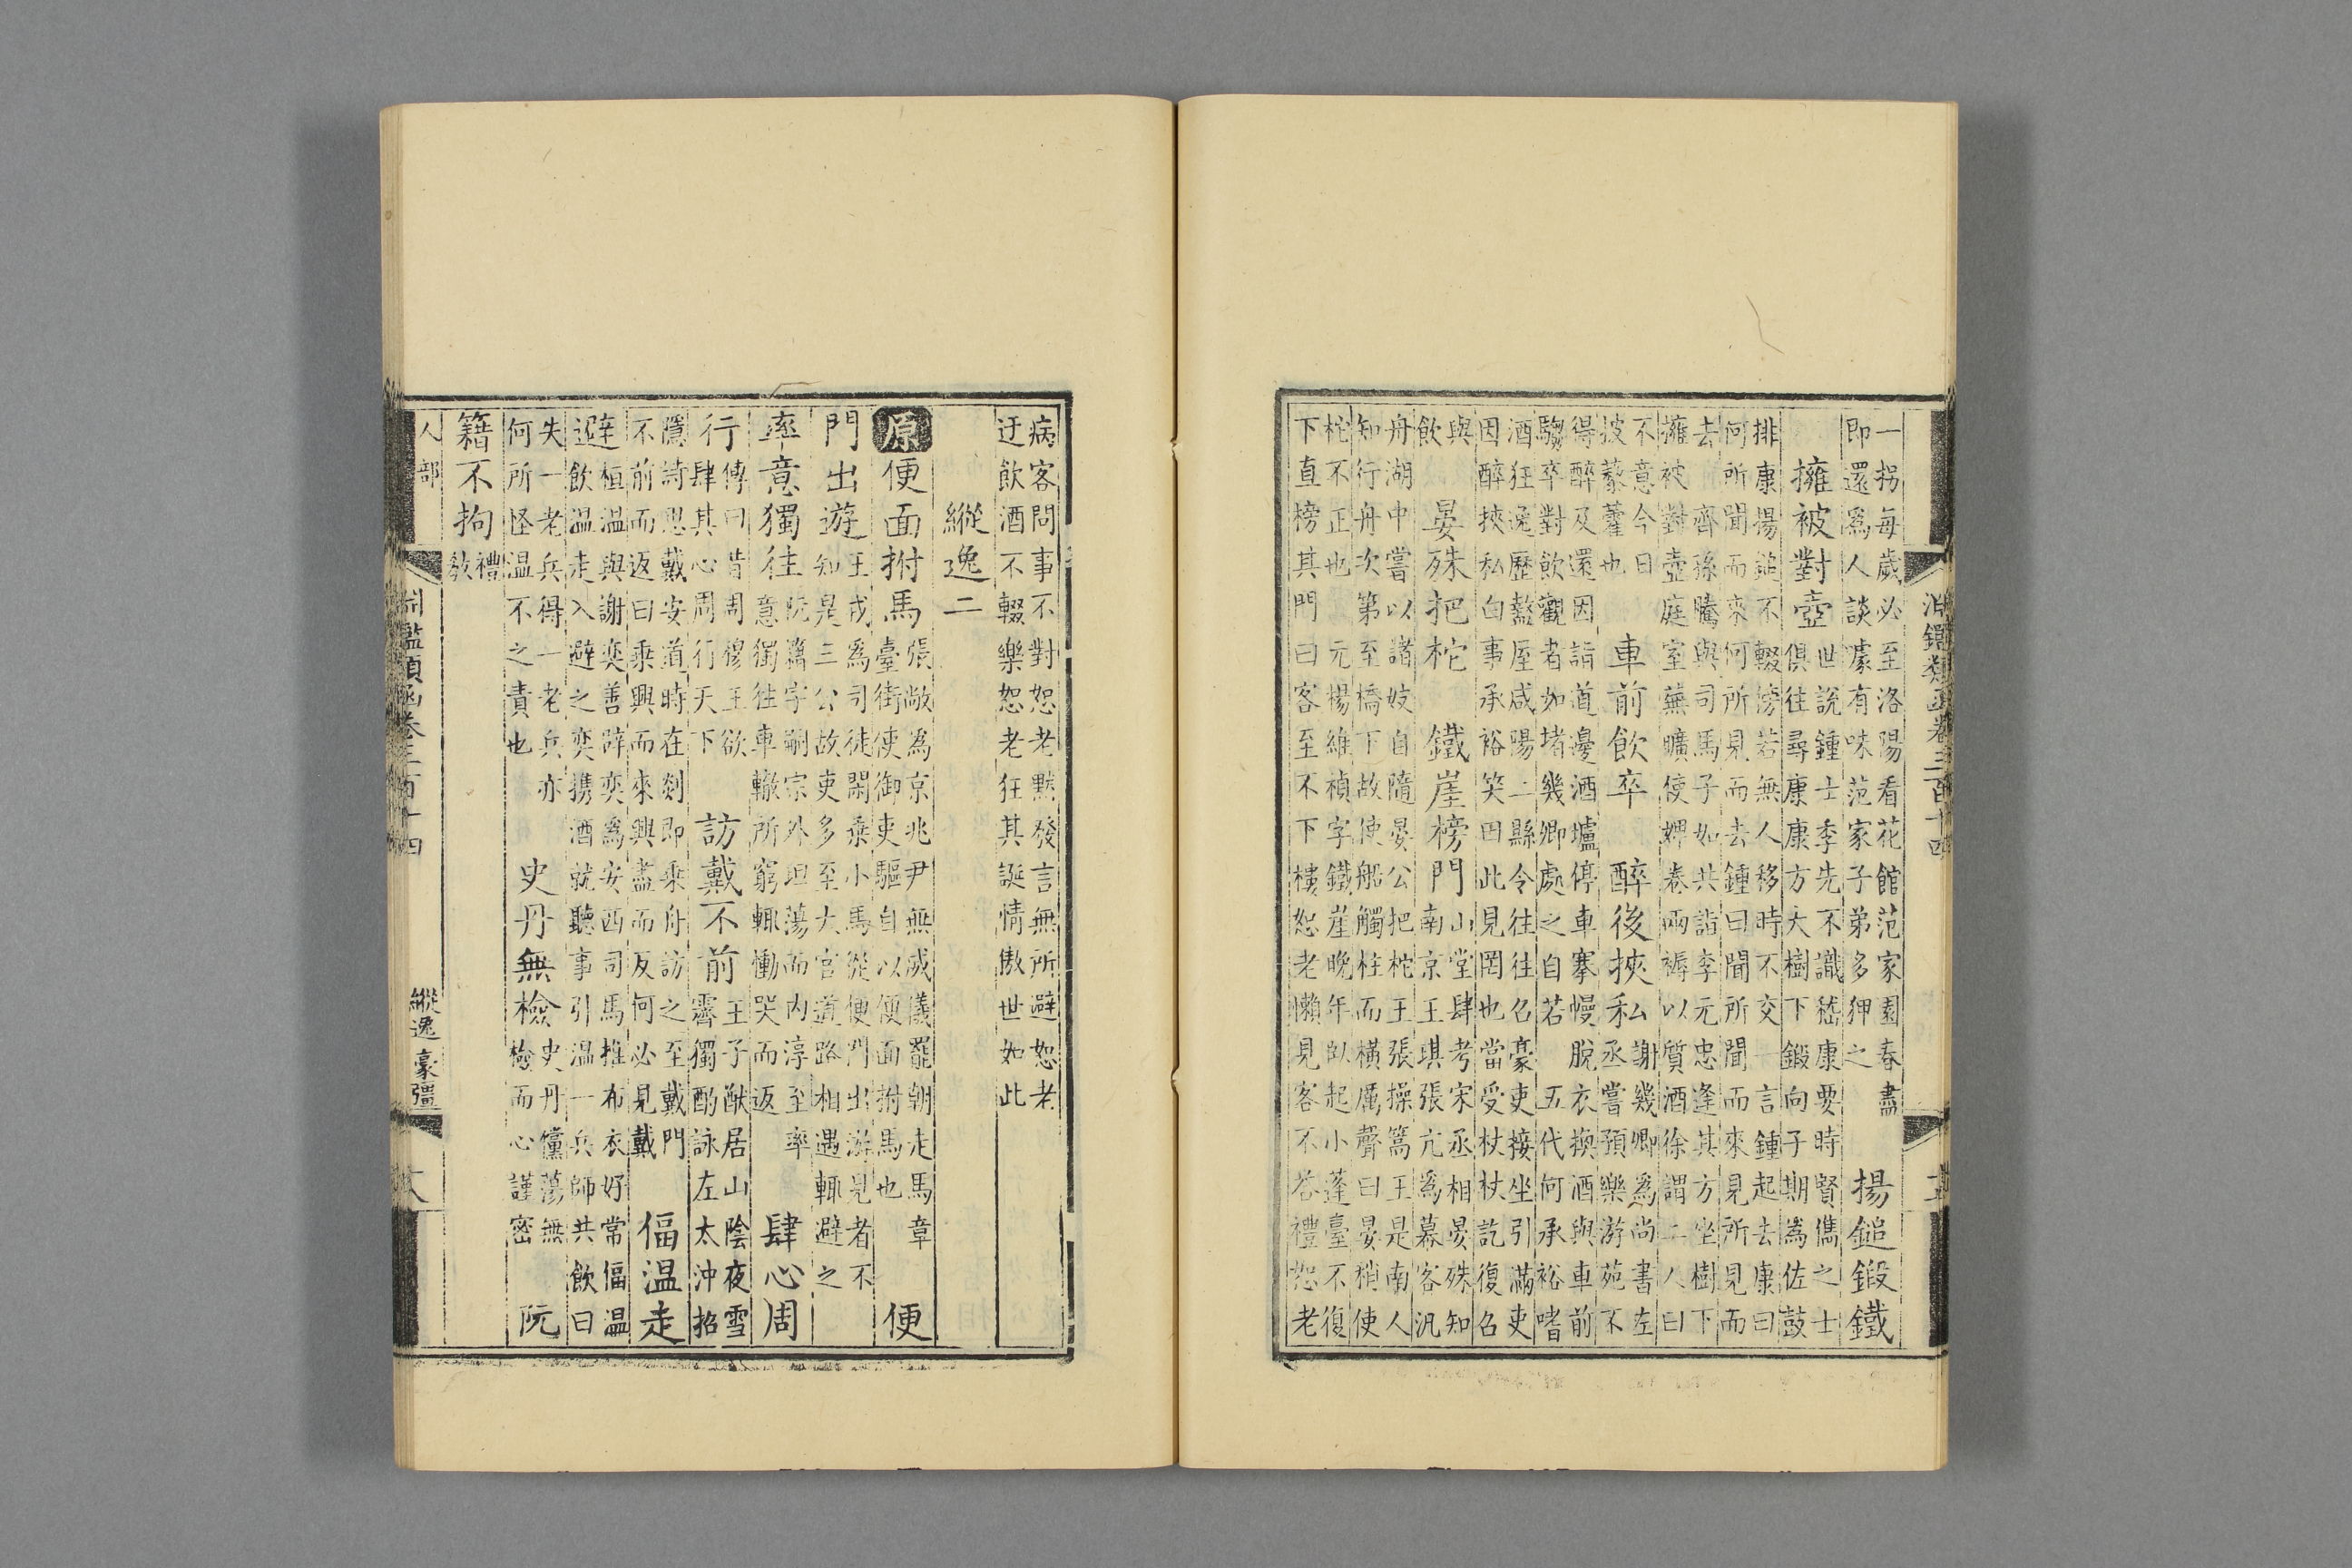 淵鑑類函卷三百十四
一拐每歲必至洛陽看花館范家園春盡
即還爲人談噱有味范家子弟多狎之
揚鎚鍛鐵
擁被對壺
世說鍾士季先不識嵇康要時賢儁之士
俱往尋康康方大樹下鍛向子期爲佐鼓
排康揚鎚不輟傍若無人移時不交一言鍾起去康曰
何所聞而來何所見而去鍾曰聞所聞而來見所見而
去 齊孫騰與司馬子如共詣李元忠逢其方坐樹下
擁被對壺庭室蕪曠使婢卷兩褥以質酒徐謂二人曰
不意今日
披藜藿也
車前飲卒
醉後挾私
謝幾卿爲尚書左
丞嘗預樂游苑不
得醉及還因詣道邊酒壚停車褰幔脫衣換酒與車前
騶卒對飲觀者如堵幾卿處之自若 五代何承裕嗜
酒狂逸歷盩厔咸陽二縣令往往召豪吏接坐引滿吏
因醉挾私白事承裕笑曰此見罔也當受杖杖訖復召
與
飲
晏殊把柁
鐵崖榜門
山堂肆考宋丞相晏殊知
南京王琪張亢爲幕客汎
舟湖中嘗以諸妓自隨晏公把柁王張操篙王是南人
知行舟次第至橋下故使船觸柱而橫厲聲曰晏梢使
柁不正也 元楊維禎字鐵崖晚年臥起小蓬臺不復
下直榜其門曰客至不下樓恕老懶見客不答禮恕老
病客問事不對恕老默發言無所避恕老
迂飲酒不輟樂恕老狂其誕情傲世如此
縱逸二
原便面拊馬
張敞爲京兆尹無威儀罷朝走馬章
臺街使御吏驅自以便面拊馬也
便
門出遊
王戎爲司徒閑乘小馬從便門出游見者不
知是三公故吏多至大官道路相遇輒避之
率意獨往
阮籍字嗣宗外坦蕩而内淳至率
意獨往車轍所窮輒慟哭而返
肆心周
行
傳曰昔周穆王欲
肆其心周行天下
訪戴不前
王子猷居山陰夜雪
霽獨酌詠左太沖招
隱詩思戴安道時在剡即乘舟訪之至戴門
不前而返曰乘興而來興盡而反何必見戴
偪温走
避
桓温與謝奕善辟奕爲安西司馬推布衣好常偪温
飲温走入避之奕携酒就聽事引温一兵師共飲曰
失一老兵得一老兵亦
何所怪温不之責也
史丹無檢
史丹儻蕩無
檢而心謹密
阮
籍不拘
禮
敎
人部
淵鑑類函卷三百十四
縱逸 豪彊